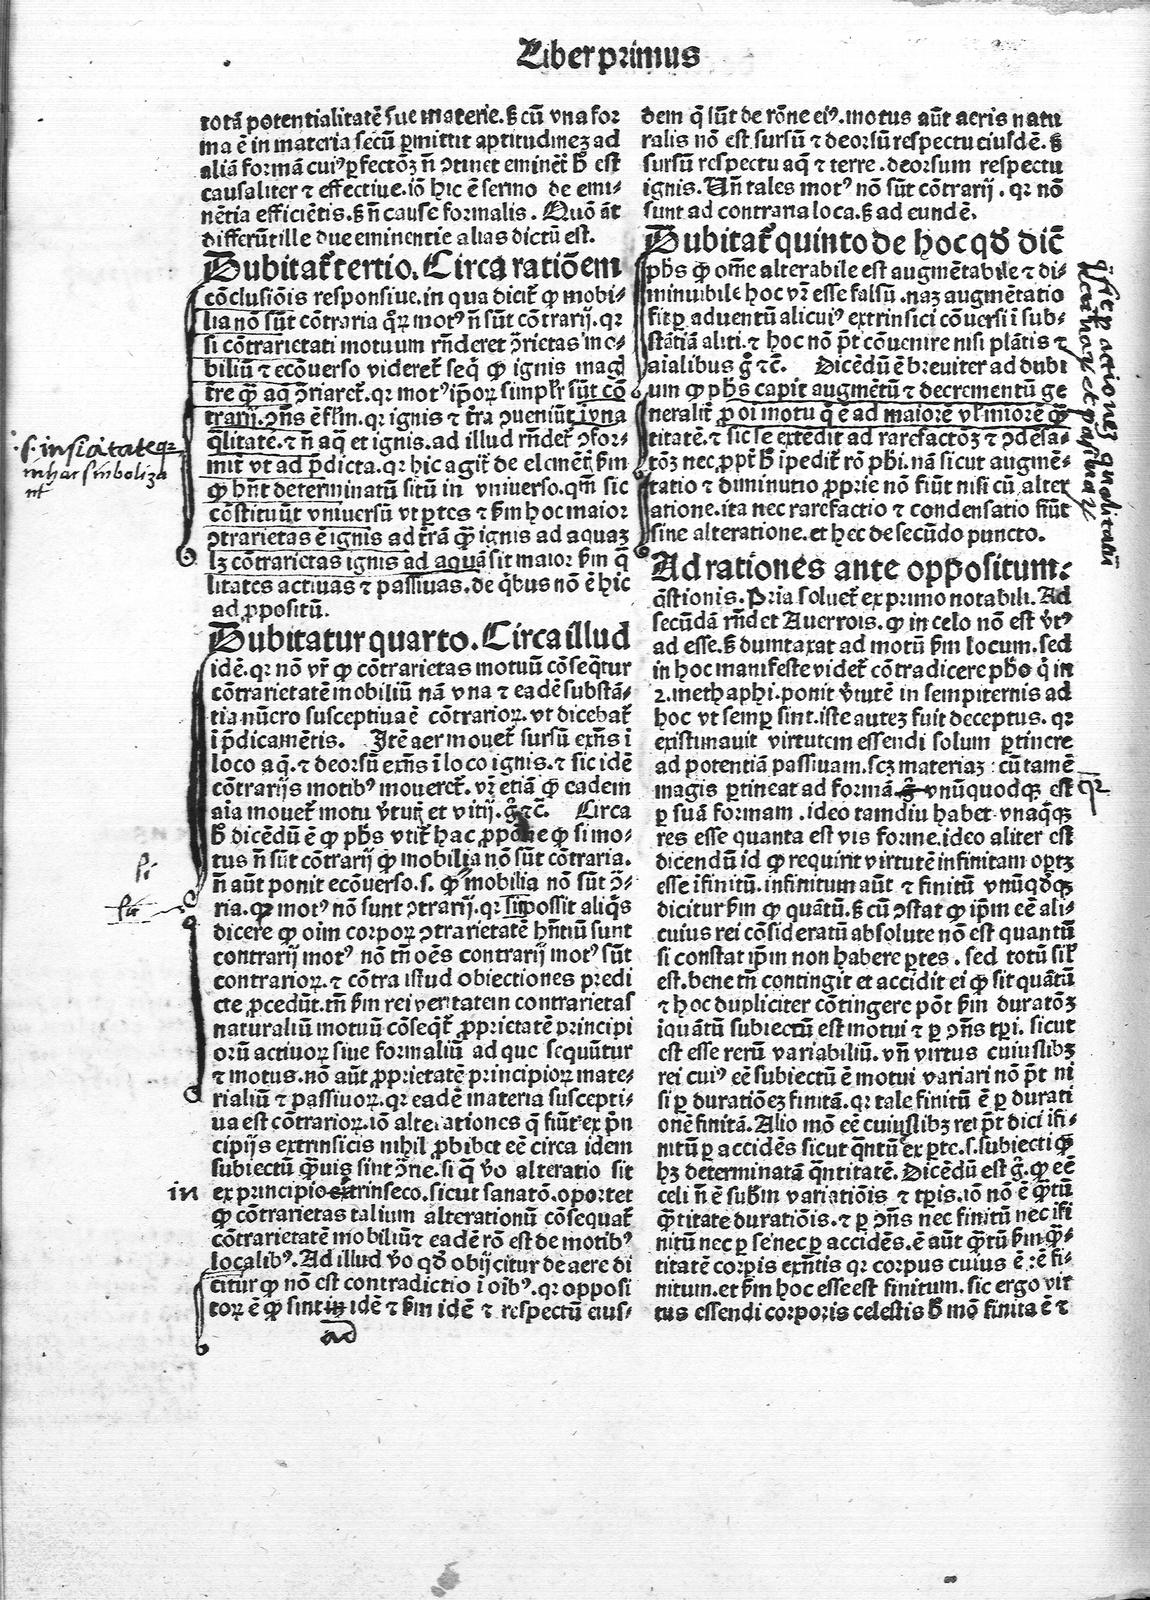 Liber primus
totā potentialitatē sue materie. s̄ cū vna for
ma ē in materia secū ꝑmittit aptitudinez ad
aliā formā cuiꝰ ꝑfectōꝫ n̄ ꝯtinet eminēt̄ h̄ est
causaliter ⁊ effectiue. iō hic ē sermo de emi⸗
nētia efficiētis. s̄ n̄ cause formalis. Quō āt
differūt ille due eminentie alias dictū est.
Dubitat̄ tertio. Circa ratiōem
cōclusiōis responsiue. in qua dicit̄ ꝙ mobi⸗
lia nō sūt cōtraria q̄ꝝ motꝰ n̄ sūt cōtrarij. qꝛ
si cōtrarietati motuum rn̄deret ꝯ̄rietas mo⸗
biliū ⁊ ecōuerso videret̄ seq̄ ꝙ ignis magl̄
tre ꝙ aq̄ ꝯriaret̄. qꝛ motꝰ ip̄oꝝ simplr̄ sūt cō
trarij. ꝯn̄s ē fl̄m. qꝛ ignis ⁊ t̄ra ꝯueniūt ī vna
q̄litate. ⁊ n̄ aq̄ et ignis. ad illud rn̄det̄ ꝯfor⸗
mit̄ vt ad p̄dicta. qꝛ hic agit̄ de elemēt̄ ẜm
ꝙ hn̄t determinatū sitū in vniuerso. qm̄ sic
cōstituūt vniuersū vt ꝑtes ⁊ ẜm hoc maior
ꝯtrarietas ē ignis ad t̄rā ꝙ̄ ignis ad aquaꝫ
lꝫ cōtrarietas ignis ad aquā sit maior ẜm q̄
litates actiuas ⁊ passiuas. de q̄bus nō ē hic
ad ꝓpositū.
Dubitatur quarto. Circa illud
idē. qꝛ nō vr̄ ꝙ cōtrarietas motuū cōseq̄tur
cōtrarietatē mobiliū nā vna ⁊ eadē substā⸗
tia nūero susceptiua ē cōtrarioꝝ. vt dicebat̄
ī p̄dicamētis. Itē aer mouet̄ sursū exn̄s ī
loco aq̄. ⁊ deorsū exn̄s ī loco ignis. ⁊ sic idē
cōtrarijs motibꝰ moueret̄. vr̄ etiā ꝙ eadem
aīa mouet̄ motu v̄tut̄ et vitij. ḡ ⁊c̄. Circa
h̄ dicēdū ē ꝙ ph̄s vtit̄ hac ꝓpōne ꝙ si mo⸗
tus n̄ sūt cōtrarij ꝙ mobilia nō sūt cōtraria.
n̄ aūt ponit ecōuerso. s. ꝙ mobilia nō sūt ꝯ̄⸗
ria. qꝛ motꝰ nō sunt ꝯtrarij. qꝛ possit aliq̄s
dicere ꝙ oīm corpoꝝ ꝯtrarietatē hn̄tiū sunt
contrarij motꝰ nō tn̄ oēs contrarij motꝰ sūt
contrarioꝝ. ⁊ cōtra istud obiectiones predi
cte ꝓcedūt. tn̄ ẜm rei veritatem contrarietas
naturaliū motuū cōseq̄t̄ ꝓprietatē principi
orū actiuoꝝ siue formaliū ad que sequūtur
⁊ motus. nō aūt ꝓprietatē principioꝝ mate⸗
rialiū ⁊ passiuoꝝ. qꝛ eadē materia suscepti⸗
ua est cōtrarioꝝ. iō alterationes q̄ fiūt ex p̄n
cipijs extrinsicis nihil ꝓhibet eē circa idem
subiectū q̄uis sint ꝯ̄rie. si q̄ v̄o alteratio sit
ex principio extrinseco. sicut sanatō. oportet
ꝙ cōtrarietas talium alterationū cōsequat̄
cōtrarietatē mobiliū ⁊ eadē rō est de motibꝰ
localibꝰ. Ad illud v̄o qd̄ obijcitur de aere di
citur ꝙ nō est contradictio ī oībꝰ. qꝛ opposi
torꝫ ē ꝙ sint in idē ⁊ ẜm idē ⁊ respectu eius⸗
dem q̄ sūt de rōne eiꝰ. motus aūt aeris natu
ralis nō est sursū ⁊ deorsū respectu eiusdē. s̄
sursū respectu aq̄ ⁊ terre. deorsum respectu
ignis. Un̄ tales motꝰ nō sūt cōtrarij. qꝛ nō
sunt ad contraria loca. s̄ ad eundē.
Dubitat̄ quinto de hoc qd̄ dic̄
ph̄s ꝙ om̄e alterabile est augmētabile ⁊ di⸗
minuibile hoc vr̄ esse falsū. naꝫ augmētatio
fit ꝑ aduentū alicuiꝰ extrinsici cōuersi ī sub⸗
stātiā aliti. ⁊ hoc nō p̄t cōuenire nisi plātis ⁊
aīalibus ḡ ⁊c̄. Dicēdū ē breuiter ad dubi
um ꝙ ph̄s capit augmētū ⁊ decremētū ge
neralit̄ ꝓ oī motu q̄ ē ad maiorē vl̄ miorē q̄
titatē. ⁊ sic se extēdit ad rarefactōꝫ ⁊ ꝯdēsa⸗
tōꝫ nec. ꝓpt̄ h̄ īpedit̄ rō ph̄i. nā sicut augmē⸗
tatio ⁊ diminutio ꝓprie nō fiūt nisi cū alter
atione. ita nec rarefactio ⁊ condensatio fiūt
sine alteratione. et hec de secūdo puncto.
Ad rationes ante oppositum:
q̄stionis. Pria soluet̄ ex primo notabili. Ad
secūdā rn̄det Auerrois. ꝙ in celo nō est v̄tꝰ
ad esse. s̄ dumtaxat ad motū ẜm locum. sed
in hoc manifeste videt̄ cōtradicere ph̄o q̄ in
2. methaphi. ponit v̄tutē in sempiternis ad
hoc vt semꝑ sint. iste auteꝫ fuit deceptus. qꝛ
existimauit virtutem essendi solum ꝑtinere
ad potentiā passiuam. scꝫ materiaꝫ: cū tamē
magis ꝑtineat ad formā ḡ vnūquodqꝫ est
ꝑ suā formam. ideo tamdiu habet vnaq̄qꝫ
res esse quanta est vis forme. ideo aliter est
dicendū id ꝙ requirit virtutē infinitam optꝫ
esse īfinitū. infinitum aūt ⁊ finitū vnūqd̄qꝫ
dicitur ẜm ꝙ quātū. s̄ cū ꝯstat ꝙ ip̄m eē ali⸗
cuius rei cōsideratū absolute nō est quantū
si constat ip̄m non habere ꝑtes. sed totū sil̄
est. bene tn̄ contingit et accidit ei ꝙ sit quātū
⁊ hoc dupliciter cōtingere pōt ẜm duratōꝫ
īquātū subiectū est motui ⁊ ꝑ ꝯn̄s tp̄i. sicut
est esse rerū variabiliū. vn̄ virtus cuiuslibꝫ
rei cuiꝰ eē subiectū ē motui variari nō p̄t ni
si ꝑ duratiōeꝫ finitā. qꝛ tale finitū ē ꝑ durati
onē finitā. Alio mō eē cuiuslibꝫ rei p̄t dici īfi⸗
nitū ꝑ accidēs sicut q̄ntū ex ꝑte. s. subiecti ꝙ̄
hꝫ determinatā q̄ntitatē. Dicēdū est ḡ. ꝙ eē
celi n̄ ē sub̄m variatiōis ⁊ tp̄is. iō nō ē q̄tū
q̄titate duratiōis. ⁊ ꝑ ꝯn̄s nec finitū nec īfi
nitū nec ꝑ se nec ꝑ accidēs. ē aūt q̄tū ẜm q̄⸗
titatē corpis exn̄tis qꝛ corpus cuius ē: ē fi⸗
nitum. et ẜm hoc esse est finitum. sic ergo vir
tus essendi corporis celestis h̄ mō finita ē ⁊
in
ad
qꝛ